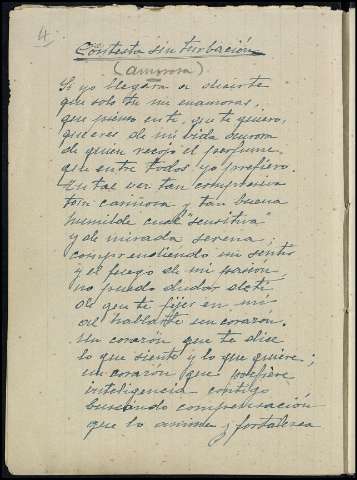 4
Contesta sin turbación
(amorosa)
Si yo llegara a decirte
que solo tu me enamoras,
que pienso en ti, que te quiero,
que eres de mi vida aurora
de quien recojo el perfume,
que entre todos yo prefiero.
En tal vez tan comprensiva
tan cariñosa y tan buena
humilde cual "sensitiva"
y de mirada serena;
comprendiendo mi sentir
y el fuego de mi pasión,
no puedo dudar de ti
al que te fijes en mi
al hablarte un corazón.
Un corazón que te dice
lo que siente y lo que quiere;
un corazón que prefiere
inteligencia contigo
buscando compenetración
que lo anime y fortalezca